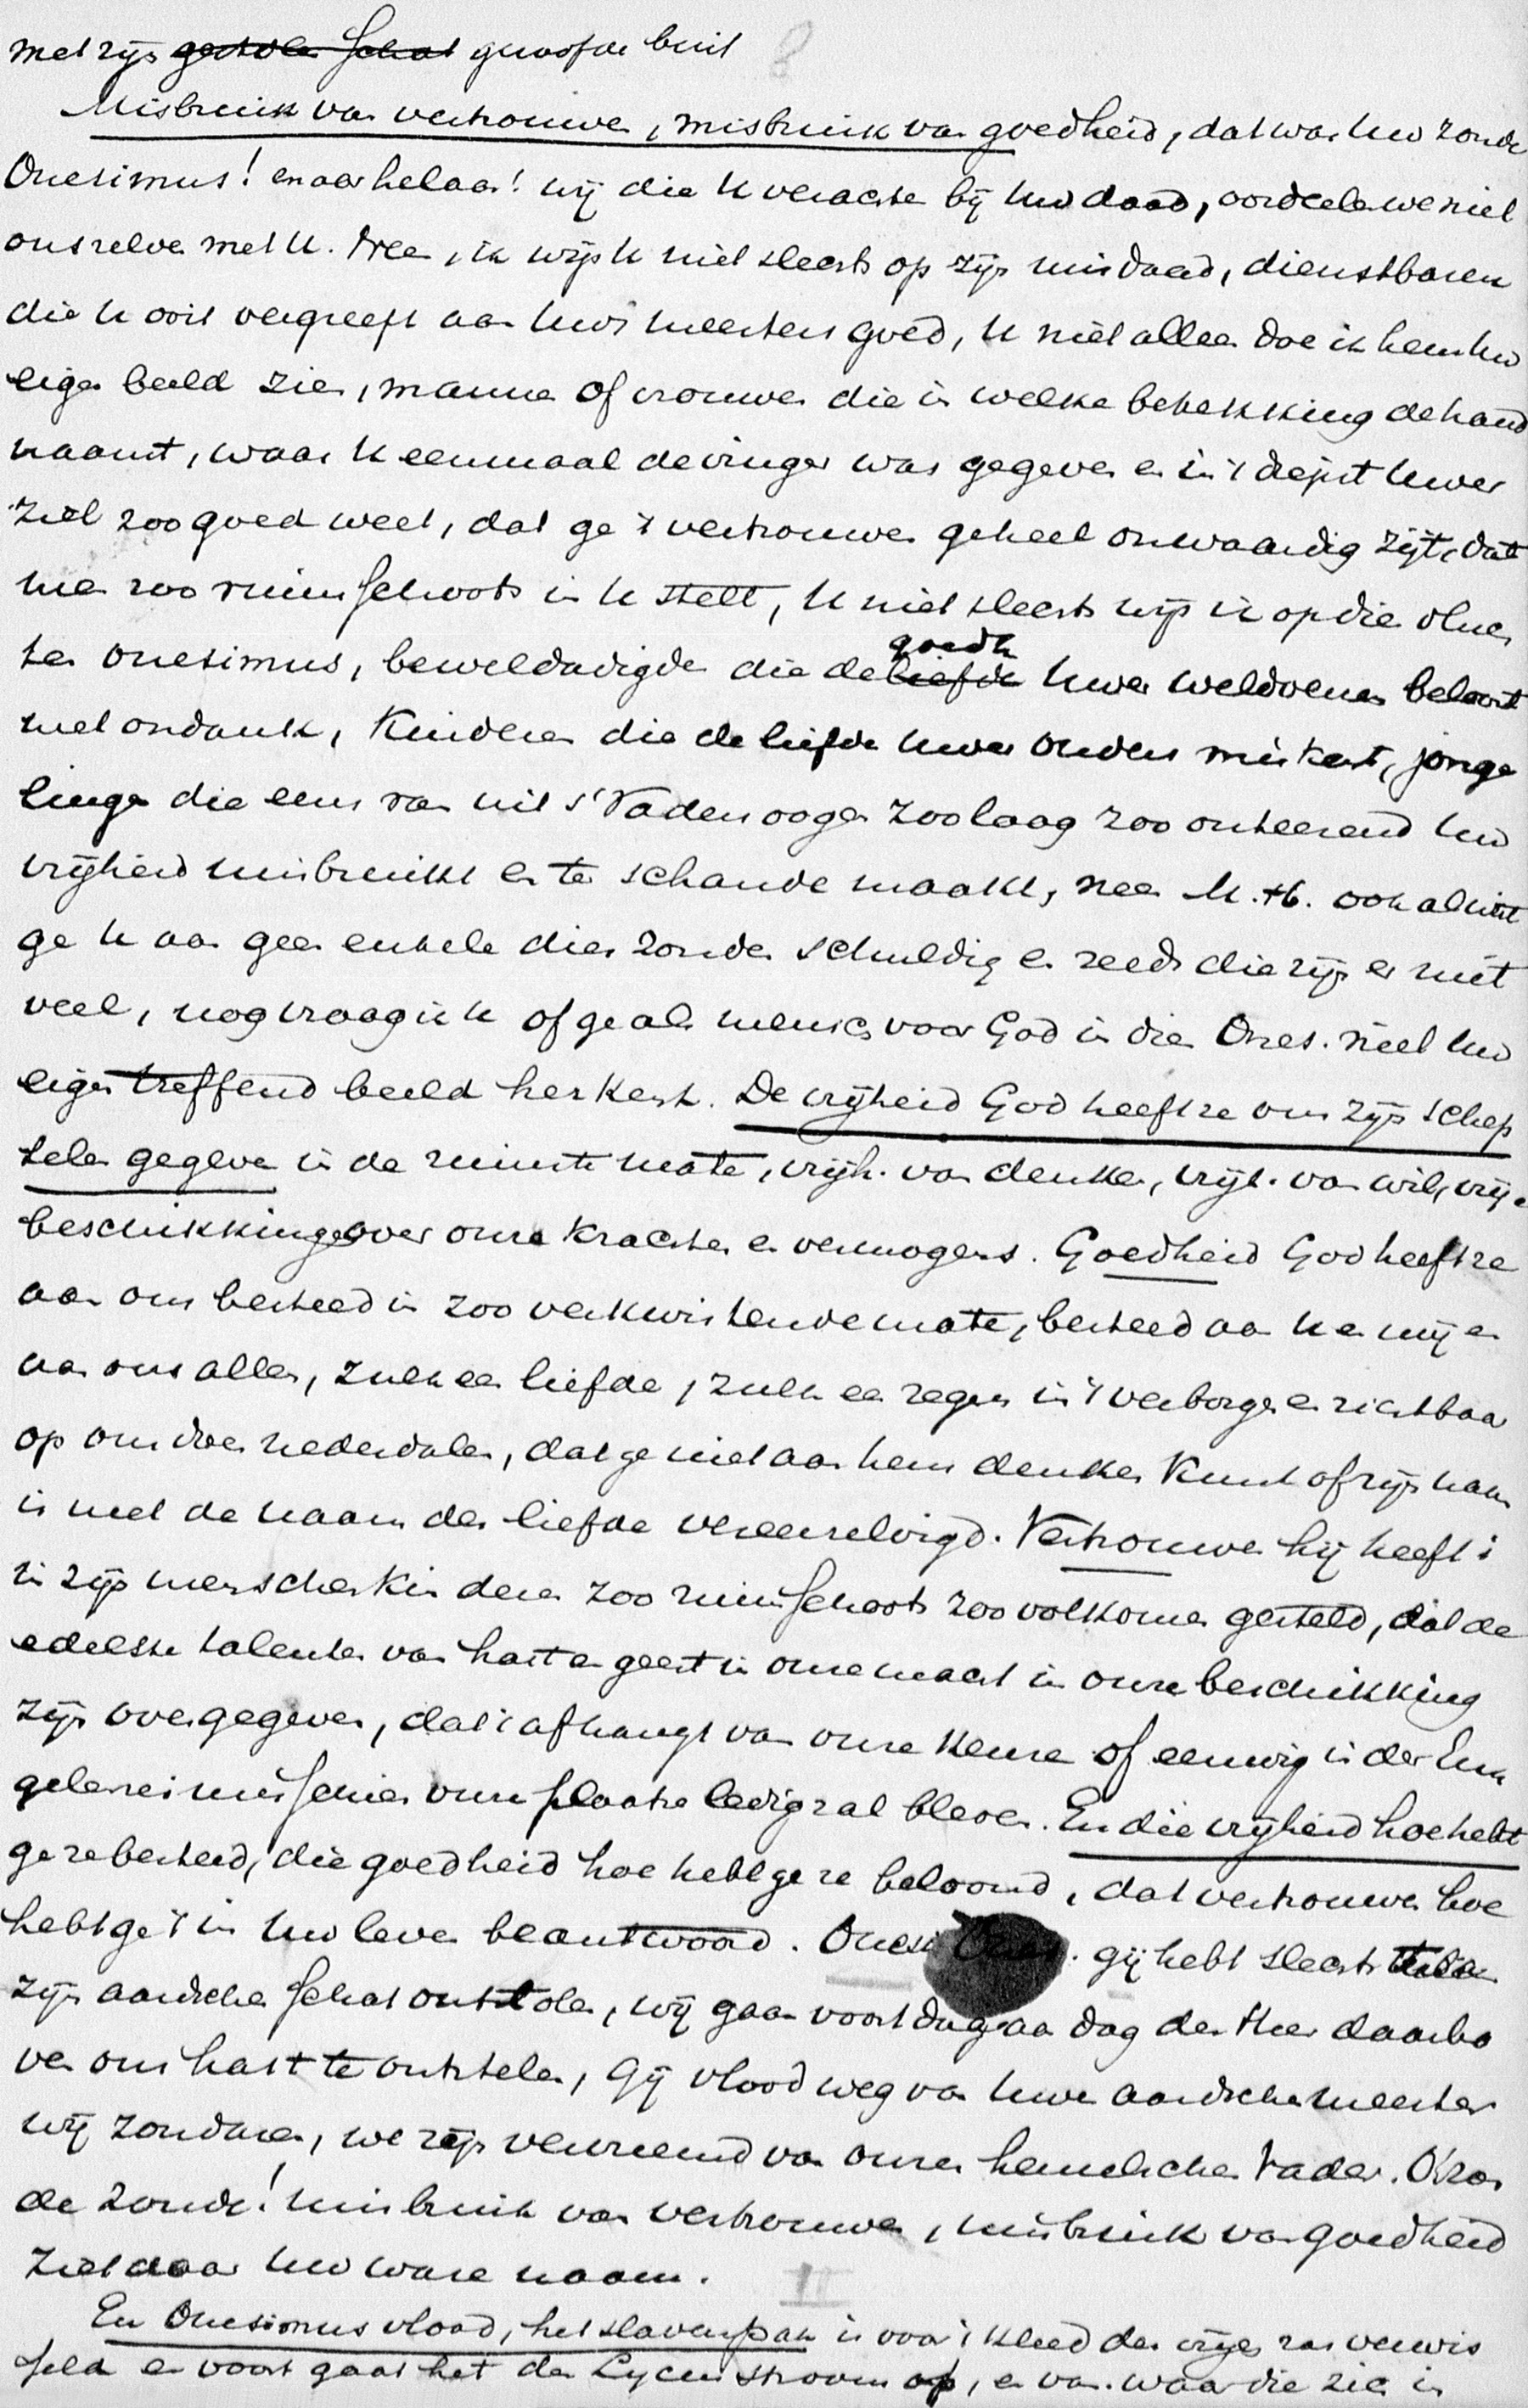 met zijn gestolen schat geroofde buit
Misbruik van vertrouwen, misbruik van goedheid, dat was Uw zonde
Onesimus! maar helaas! wij die U verachten bij Uw daad, oordeelen we niet
ons zelve met U. Neen, ik wijs U niet slechts op zijn misdaad, dienstbaren
die U ooit vergreept aan Uws meesters goed, U niet alleen doe ik hem Uw
eigen beeld zien, mannen of vrouwen die in welke betrekking de hand
naamt, waar U eenmaal de vinger was gegeven en in 't diepst Uwer
ziel zoo goed weet, dat ge 't vertrouwen geheel onwaardig zijt, dat
men zoo ruimschoots in U stelt, U niet slechts wijs ik op dien vluch
ten Onesimus, beweldadigden die de liefde goedh Uwer weldoeners beloont
met ondank, Kinderen die de liefde Uwer Ouders miskent, jonge
lingen die eens van uit 's Vaders oogen zoo laag zoo onteerend Uw
vrijheid misbruikt en te schande maakt, neen M. H. ook al wist
ge U aan geen enkele dier zonden schuldig en reeds die zijn er niet
veel, nog vraag ik U of ge als mensch voor God in dien Ones. niet Uw
eigen treffend beeld herkent. De vrijheid God heeft ze ons zijn schep
selen gegeven in de ruimste mate, vrijh. van denken, vrijh. van wil, vrije
beschikking over onze krachten en vermogens. Goedheid God heeft ze
aan ons besteed in zoo verkwistende mate, besteed aan U en mij en
aan ons allen, zulk een liefde, zulk een zegen in 't verborgen en zichtbaar
op ons doen nederdalen, dat ge niet aan hem denken kunt of zijn naam
is met de naam der liefde vereenzelvigd. Vertrouwen hij heeft 't
in zijn menschenkinderen zoo ruimschoots zoo volkomen gesteld, dat de
edelste talenten van hart en geest in onze macht in onze beschikking
zijn overgegeven, dat 't afhangt van onze keuze of eeuwig in der En
gelenrei misschien onze plaatse ledig zal bleven. En die vrijheid hoe hebt
ge ze besteed, die goedheid hoe hebt ge ze beloond, dat vertrouwen hoe
hebt ge 't in Uw leven beantwoord. Onesi Ones. gij hebt slechts
zijn aardschen schat ontstolen, wij gaan voort dag aan dag den Heer daarbo
ven ons hart te ontstelen, Gij vlood weg van Uwe aardschen meester
wij zondaren, we zijn vervreemd van onzen hemelschen Vader. O zon
de zonde! misbruik van vertrouwen, misbruik van goedheid
ziet daar Uw ware naam.
II
En Onesimus vlood, het slavenpak is voor 't kleed des vrijen ras verwis
seld en voort gaat het den Lycusstroom op, en van. waar die zich in